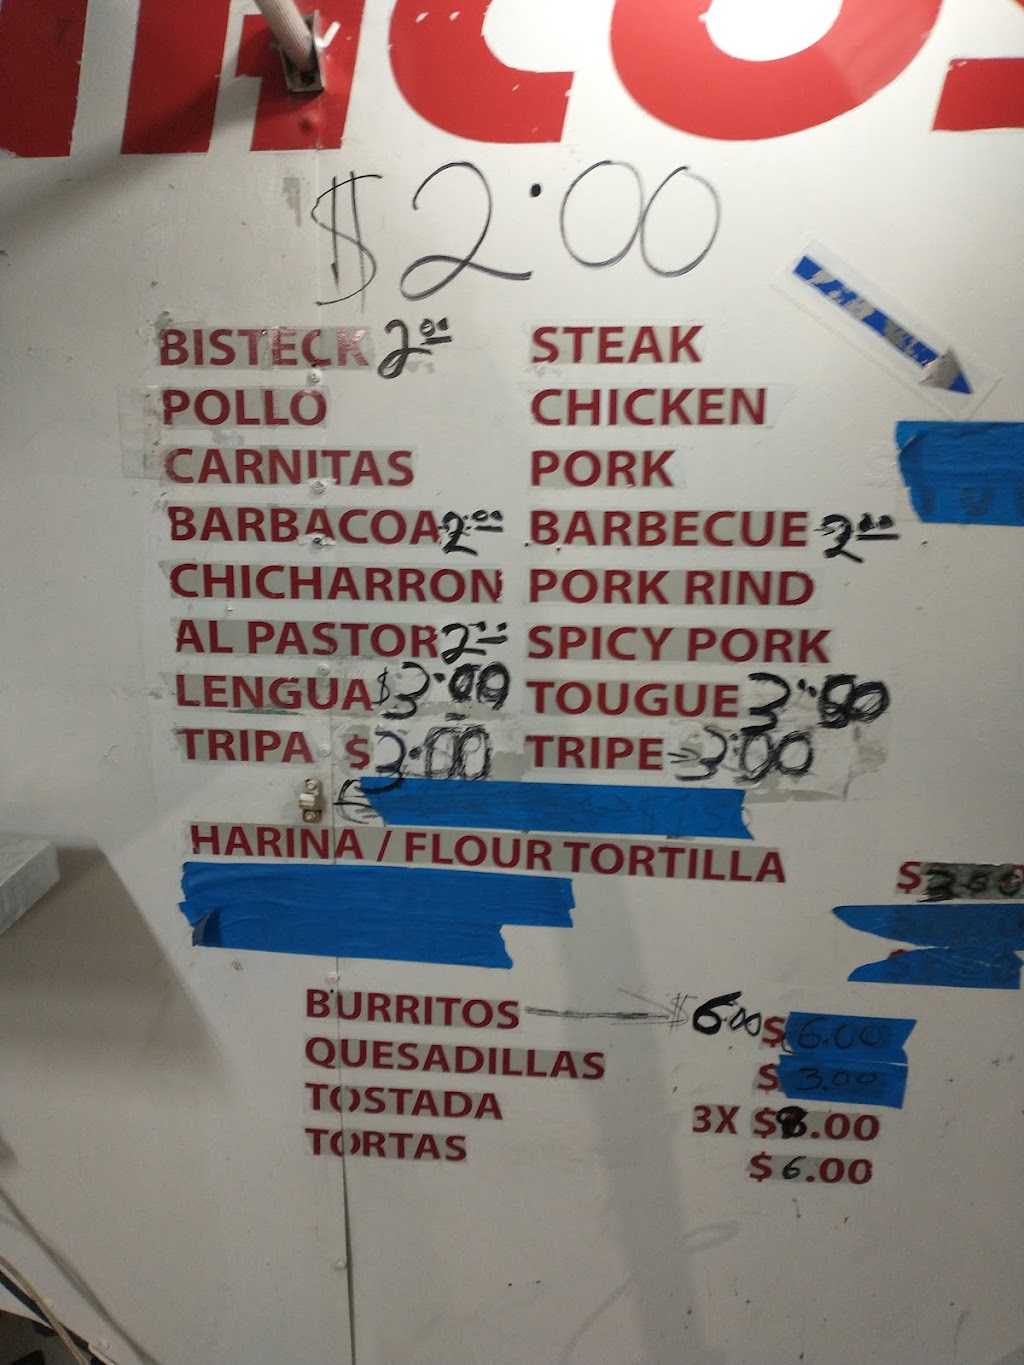 TACOS
$2.00
BISTECK 2.00 STEAK
POLLO CHICKEN
CARNITAS PORK
BARBACOA 2.00 BARBECUE 2.00
CHICHARRON PORK RIND
AL PASTOR 2.00 SPICY PORK
LENGUA $3.00 TOUGUE 3.00
TRIPA $3.00 TRIPE 3:00
HARINA / FLOUR TORTILLA $
BURRITOS $6.00 $6.00
QUESADILLAS $3.00
TOSTADA 3X $8.00
TORTAS $6.00